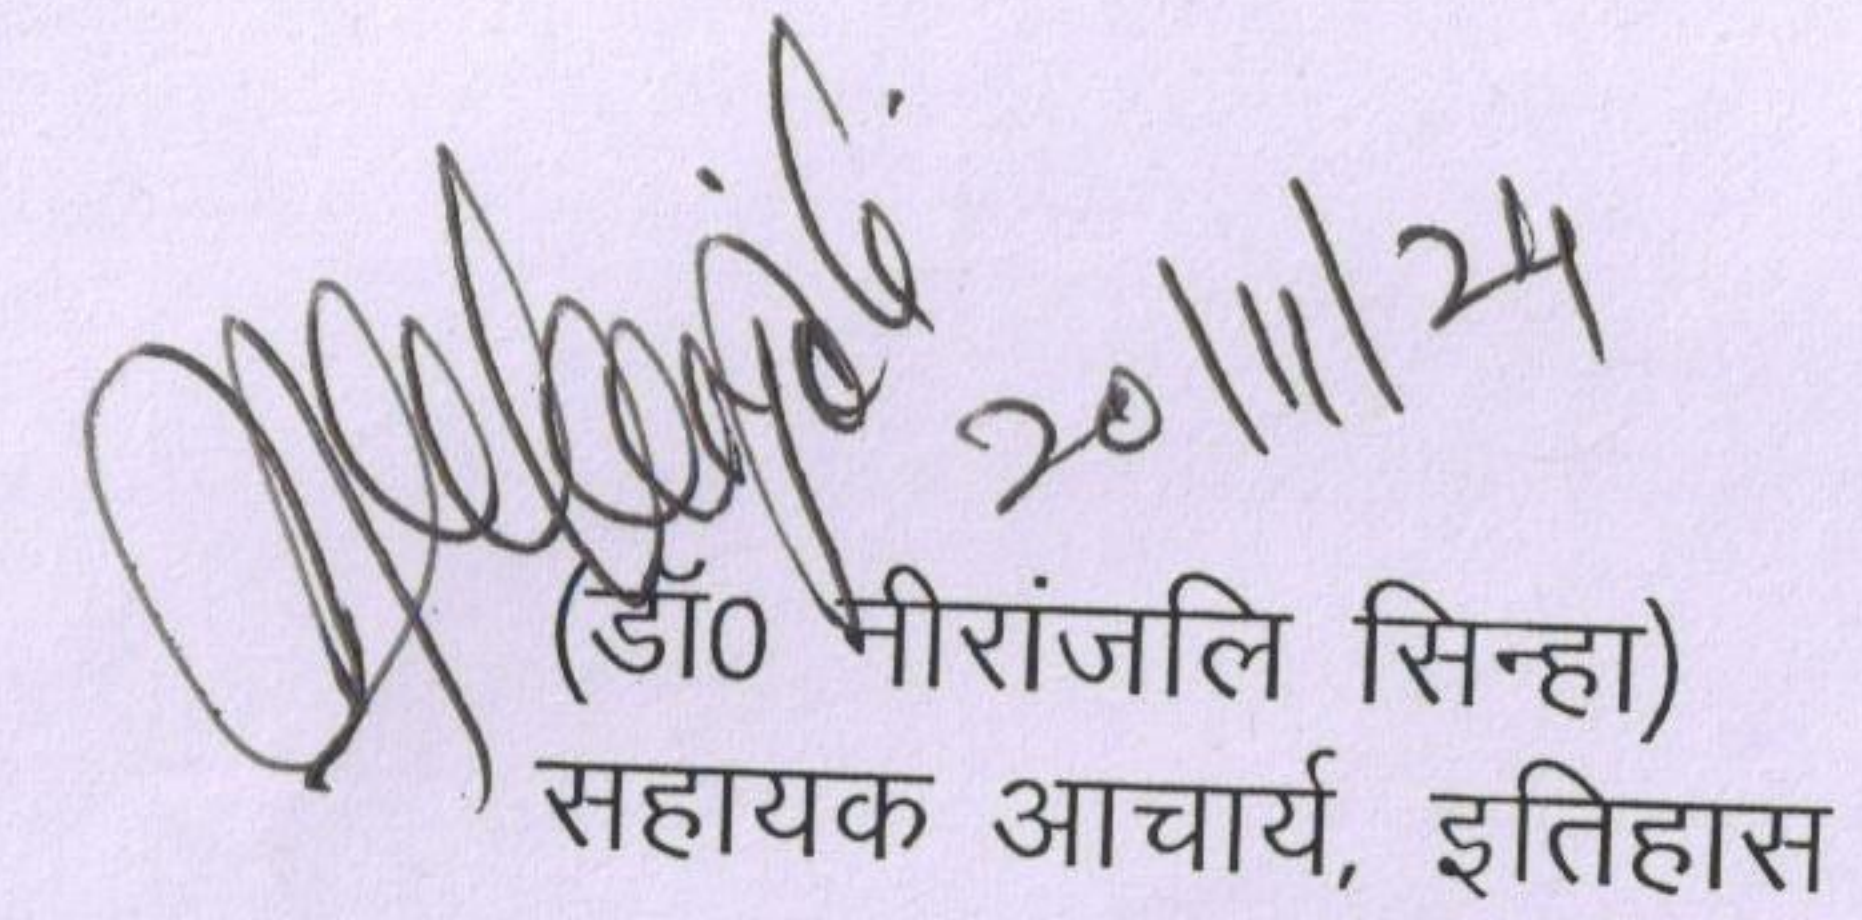 20/11/24
(डॉ0 नीरांजलि सिन्हा)
सहायक आचार्य, इतिहास